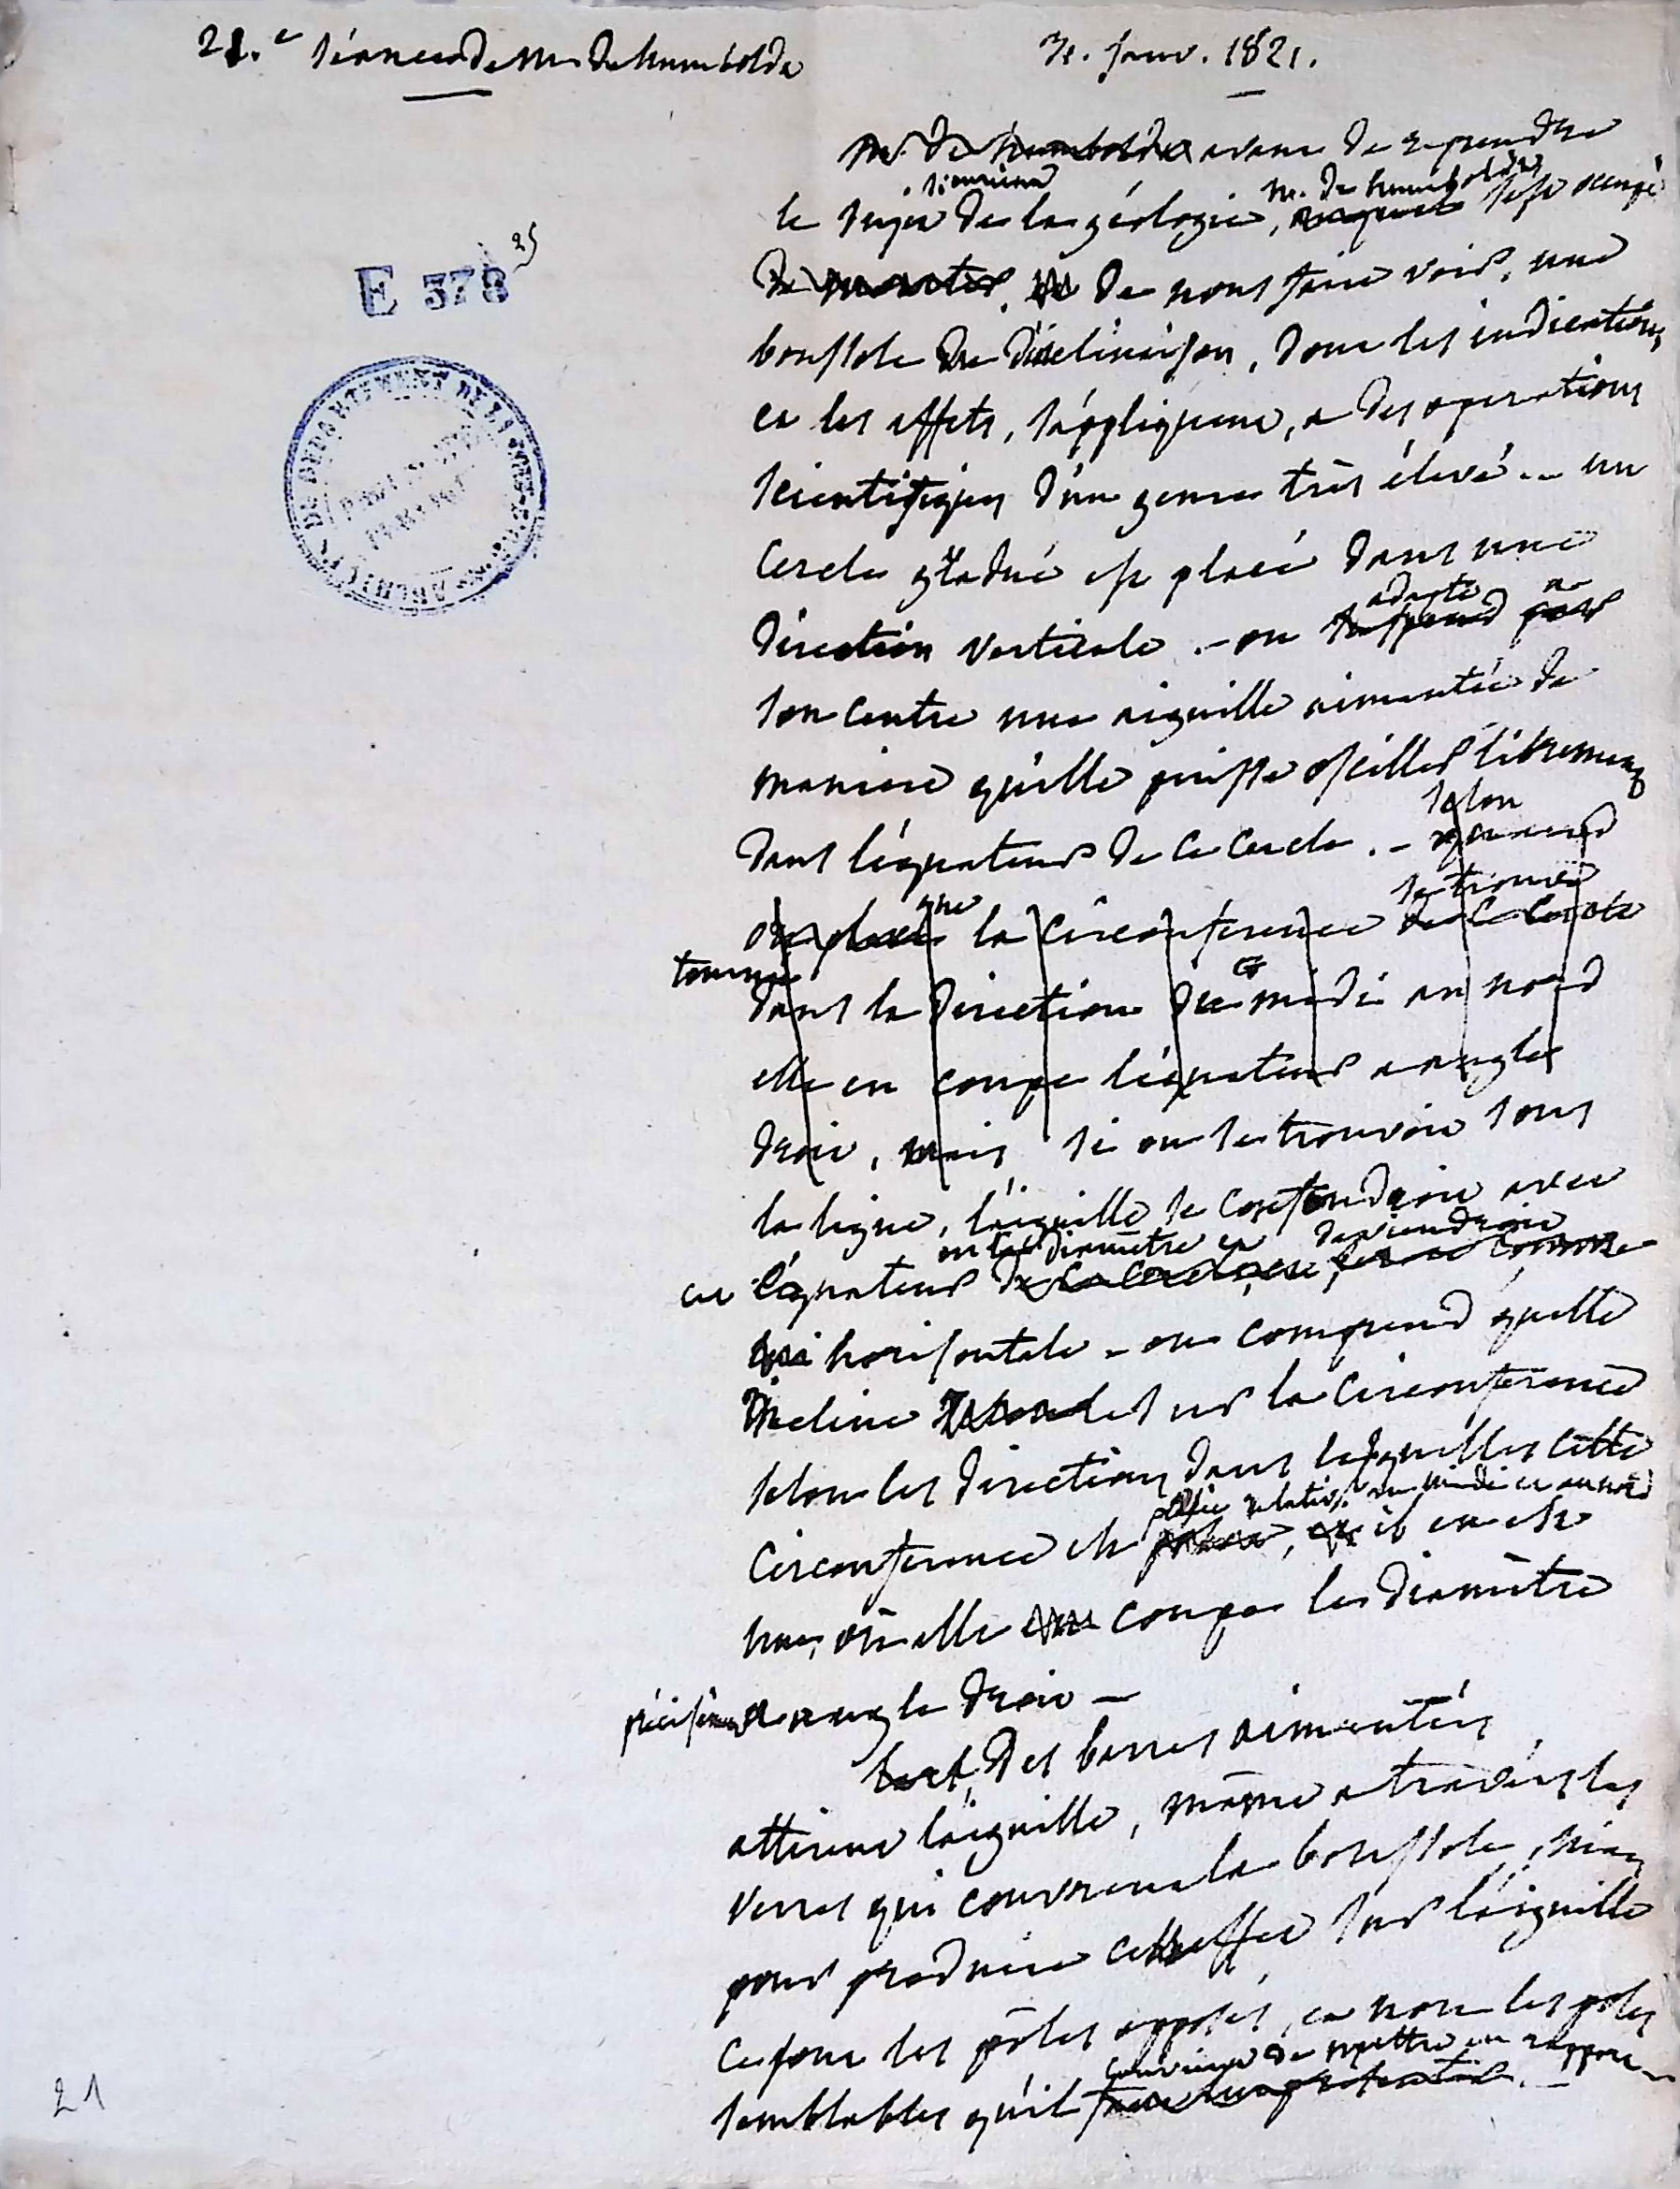 21.e séance de Mr de humboldt
31. janv. 1821.
E 378 25
Mr. de humboldt avant de reprendre
le sujet de la géologie, Mr. de humboldt s'est occupé
de montrer, de nous faire voir, une
boussole de déclinaison, dont les indications
et les effets, s'appliquent, a des operations
scientifiques d'un genre très élevé... un
cercle gradué est placé dans une
adapte a
direction verticale. - on suspend par
son centre une aiguille aimantée de
maniere qu'elle puisse osciller librement
selon
dans l'équateur de ce cercle. - quand
que se trouve
on place la circonférence de ce cercle
tournée
dans la direction du midi au nord
elle en coupe l'équateur a angles
droit, mais si on se trouvoit sous
la ligne, l'aiguille se confondroit avec
ou le diamètre et deviendroit
cet équateur de ce cercle,
horisontale - on comprend qu'elle
incline sur la circonférence
selon les directions dans lesquelles cette
placée relativt au midi et au nord
circonférence est, il en est
une, où elle coupe le diamètre
précisément a angle droit -
des barres aimantées
attirent l'aiguille, même a travers les
verres qui couvrent la boussole, mais
pour produire cet effet sur l'aiguille
ce sont les pôles opposés, et non les poles
convient de mettre en rapport
semblables qu'il faut lui présenter. -
21